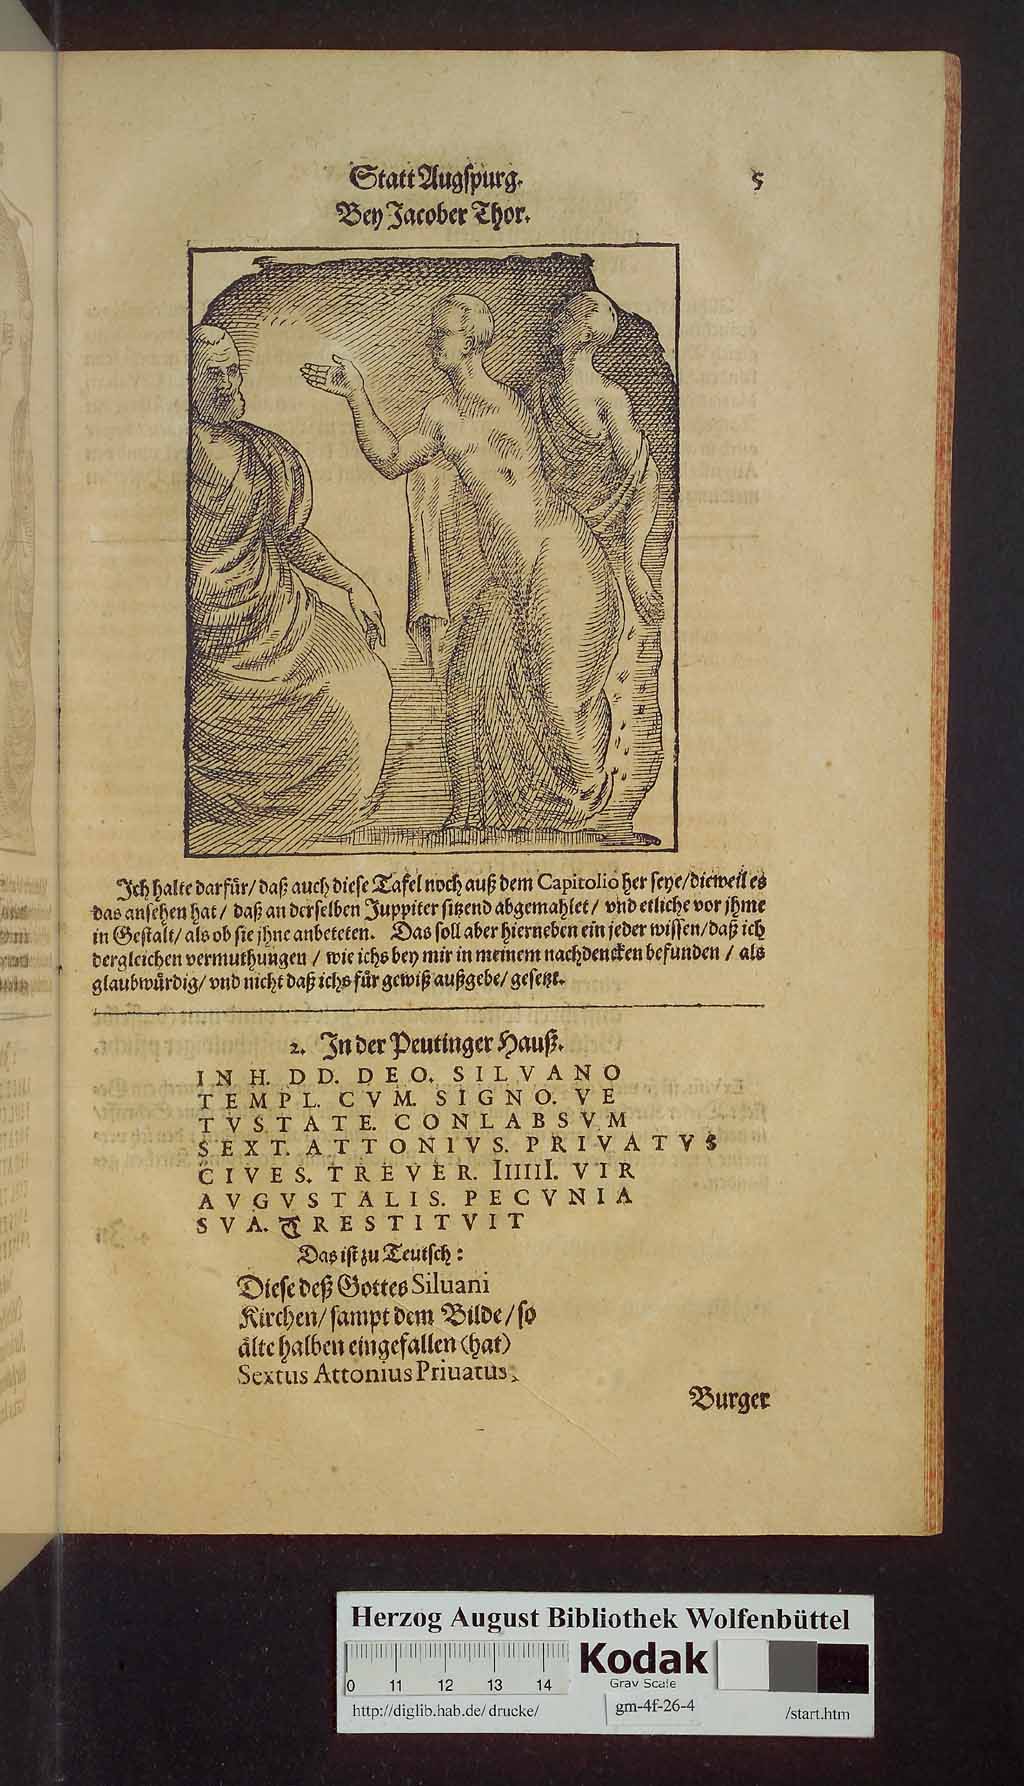 Statt Augspurg.
5
Bey Jacober Thor.
Ich halte darfür/ daß auch diese Tafel noch auß dem Capitolio her seye/ dieweil es
das ansehen hat/ daß an derselben Juppiter sitzend abgemahlet/ vnd etliche vor jhme
in Gestalt/ als ob sie jhne anbeteten. Das soll aber hierneben ein jeder wissen/ daß ich
dergleichen vermuthungen / wie ichs bey mir in meinem nachdencken befunden / als
glaubwürdig/ vnd nicht daß ichs für gewiß außgebe/ gesetzt.
2. In der Peutinger Hauß.
IN H. DD. DEO. SILVANO
TEMPL. CVM. SIGNO. VE
TVSTATE. CONLABSVM
SEXT. ATTONIVS. PRIVATVS
CIVES. TREVER. IIIIII. VIR
AVGVSTALIS. PECVNIA
SVA. RESTITVIT
Das ist zu Teutsch:
Diese deß Gottes Siluani
Kirchen/ sampt dem Bilde/ so
älte halben eingefallen (hat)
Sextus Attonius Priuatus,
Burger
Herzog August Bibliothek Wolfenbüttel
0 11 12 13 14
Kodak
Gray Scale
http://diglib.hab.de/drucke/
gm-4f-26-4
/start.htm